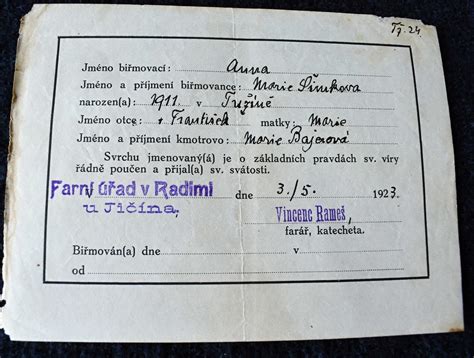 Tž. 24.
Jméno biřmovací: Anna
Jméno a příjmení biřmovance: Marie Šimkova
narozen(a): 1911 v Tužíně
Jméno otce: František matky: Marie
Jméno a příjmení kmotrovo: Marie Bajerová
Svrchu jmenovaný(á) je o základních pravdách sv. víry
řádně poučen a přijal(a) sv. svátosti.
Farní úřad v Radimi dne 3./5. 1923
u Jičína,
Vincenc Rameš,
farář, katecheta.
Biřmován(a) dne v
od